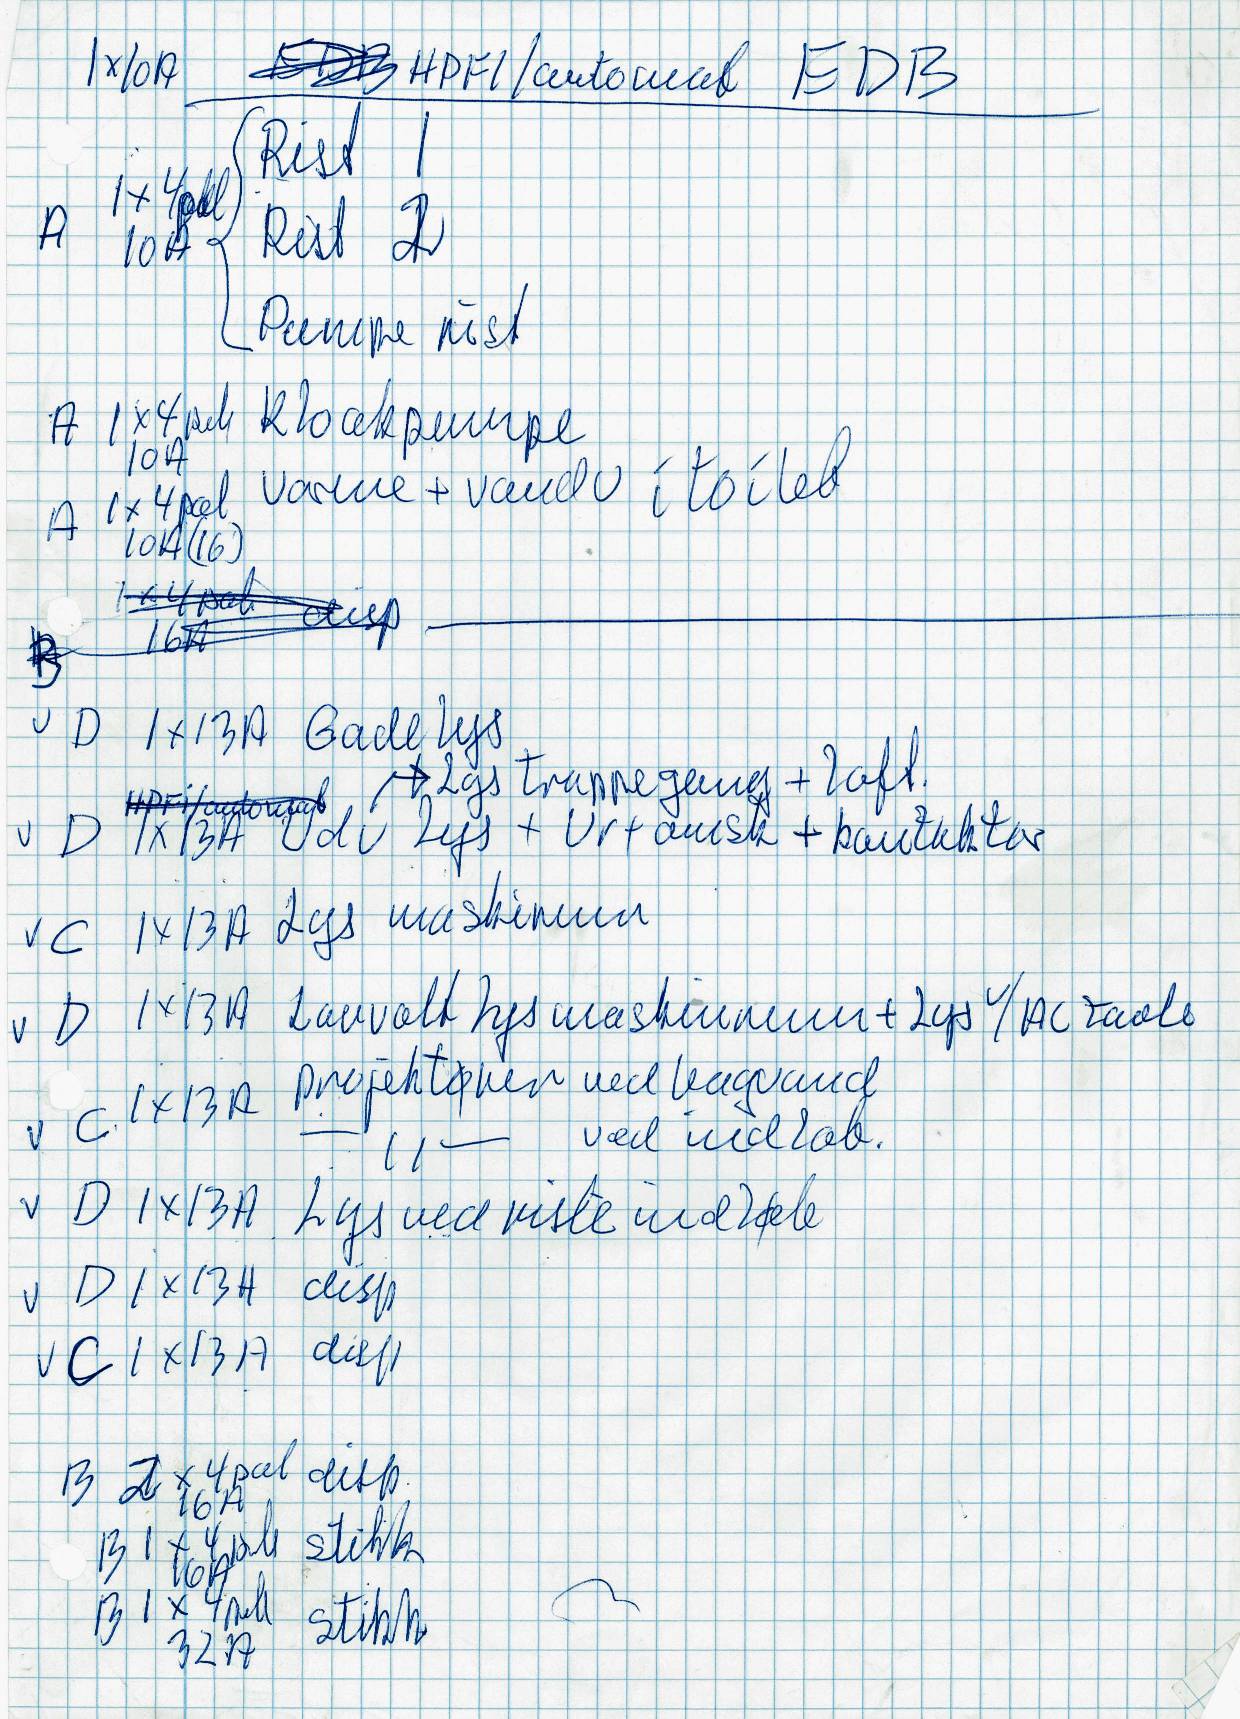 1x10A EDB HPFI/automat EDB
Rist 1
A 1x4pol
10A Rist 2
Pumpe rist
A 1x4pol Kloakpumpe
10A
A 1x4pol varme + vandv i toilet
10A(16)
1x4pol disp
16A
B
v D 1x13A Gadelys
→ Lys trappegang + loft.
HPFI/automat
v D 1x13A Udv lys + Ur + omsk + kontaktor
v C 1x13A Lys maskinrum
v D 1x13A Lavvolt lys maskinrum + Lys v/AC
v C. 1x13A projektører ved bagvand
— 11 — ved indløb.
v D 1x13A Lys ved riste indløb
v D 1x13A disp
v C 1x13A disp
B 2 x 4pol disp.
16A
B 1 x 4pol stikk
16A
B 1 x 4pol stikk
32A